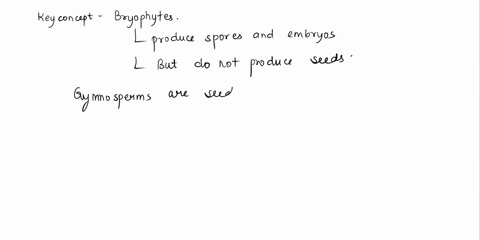 Key concept - Bryophytes.
produce spores and embryos
But do not produce seeds.
Gymnosperms are seed